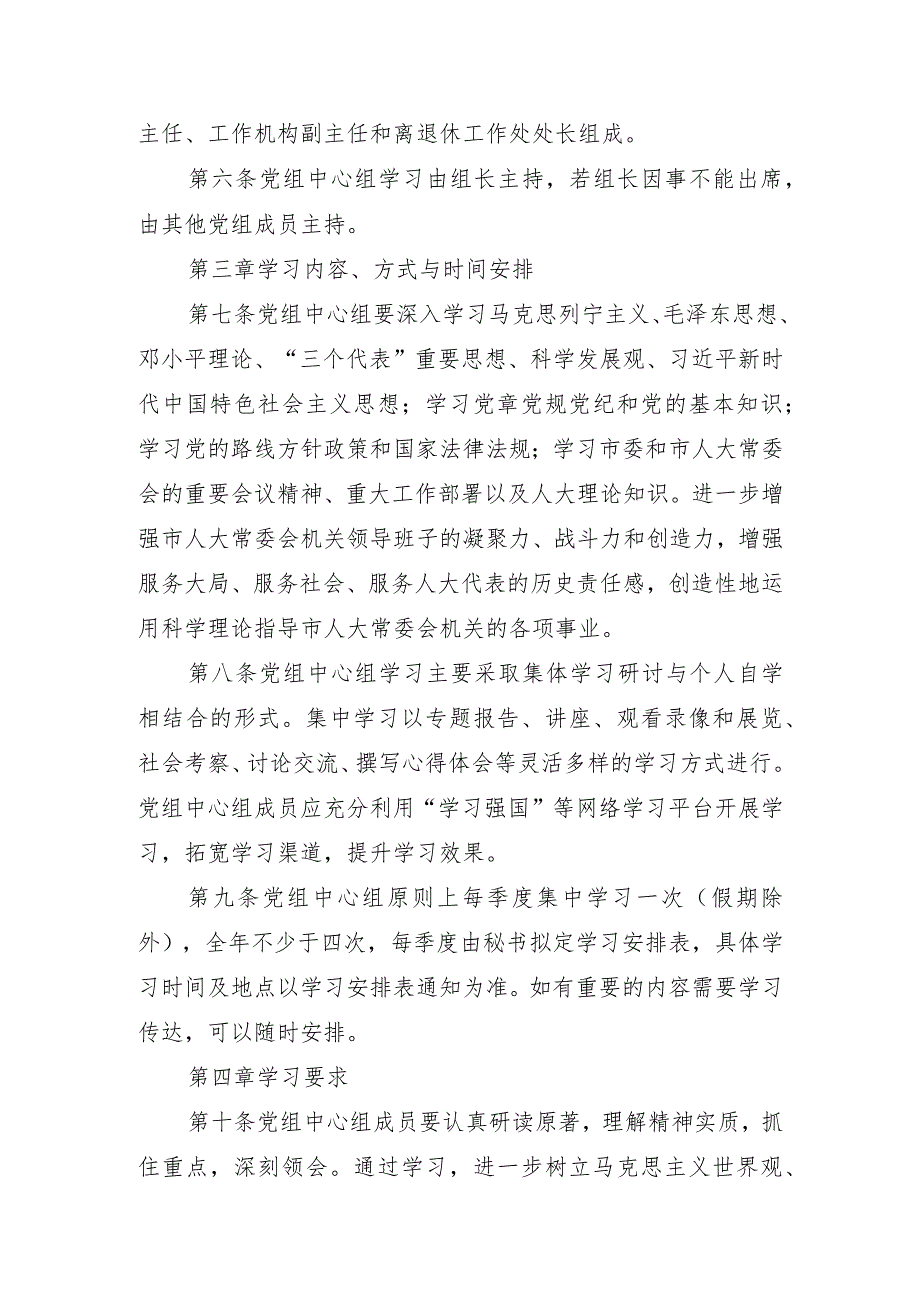 主任、工作机构副主任和离退休工作处处长组成。
第六条党组中心组学习由组长主持，若组长因事不能出席，
由其他党组成员主持。
第三章学习内容、方式与时间安排
第七条党组中心组要深入学习马克思列宁主义、毛泽东思想、
邓小平理论、“三个代表”重要思想、科学发展观、习近平新时
代中国特色社会主义思想；学习党章党规党纪和党的基本知识；
学习党的路线方针政策和国家法律法规；学习市委和市人大常委
会的重要会议精神、重大工作部署以及人大理论知识。进一步增
强市人大常委会机关领导班子的凝聚力、战斗力和创造力，增强
服务大局、服务社会、服务人大代表的历史责任感，创造性地运
用科学理论指导市人大常委会机关的各项事业。
第八条党组中心组学习主要采取集体学习研讨与个人自学
相结合的形式。集中学习以专题报告、讲座、观看录像和展览、
社会考察、讨论交流、撰写心得体会等灵活多样的学习方式进行。
党组中心组成员应充分利用“学习强国”等网络学习平台开展学
习，拓宽学习渠道，提升学习效果。
第九条党组中心组原则上每季度集中学习一次（假期除
外），全年不少于四次，每季度由秘书拟定学习安排表，具体学
习时间及地点以学习安排表通知为准。如有重要的内容需要学习
传达，可以随时安排。
第四章学习要求
第十条党组中心组成员要认真研读原著，理解精神实质，抓
住重点，深刻领会。通过学习，进一步树立马克思主义世界观、